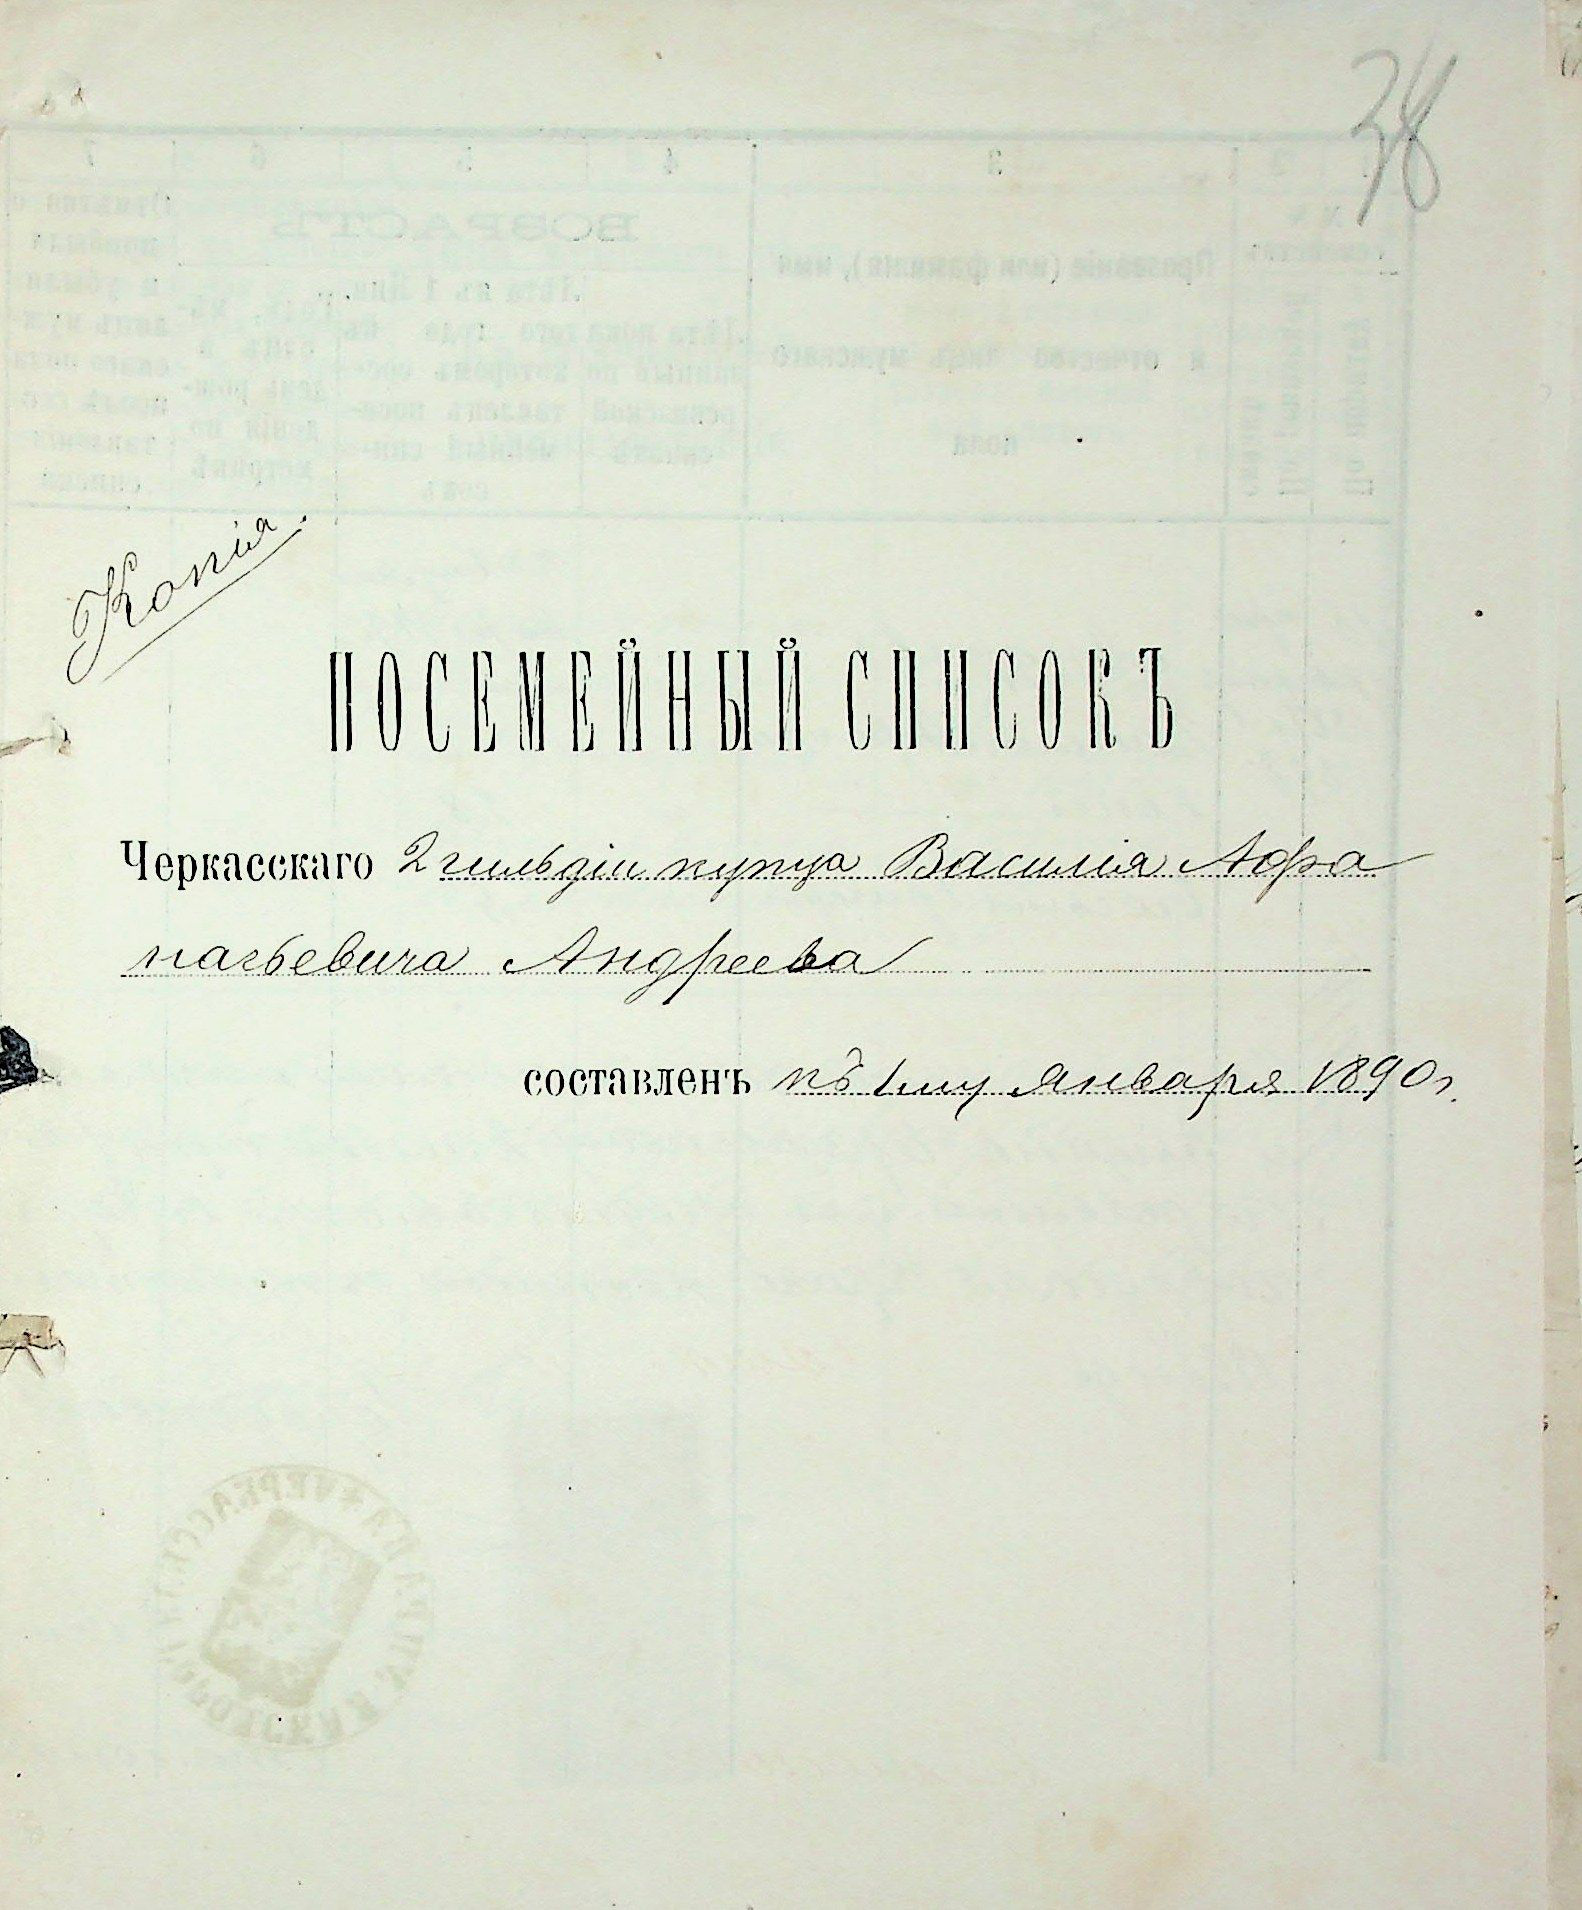 38
Копія.
ПОСЕМЕЙНЫЙ СПИСОКЪ
Черкасскаго 2 гильдіи купца Василія Афа
насьевича Андреева
составленъ къ 1му января 1890 г.